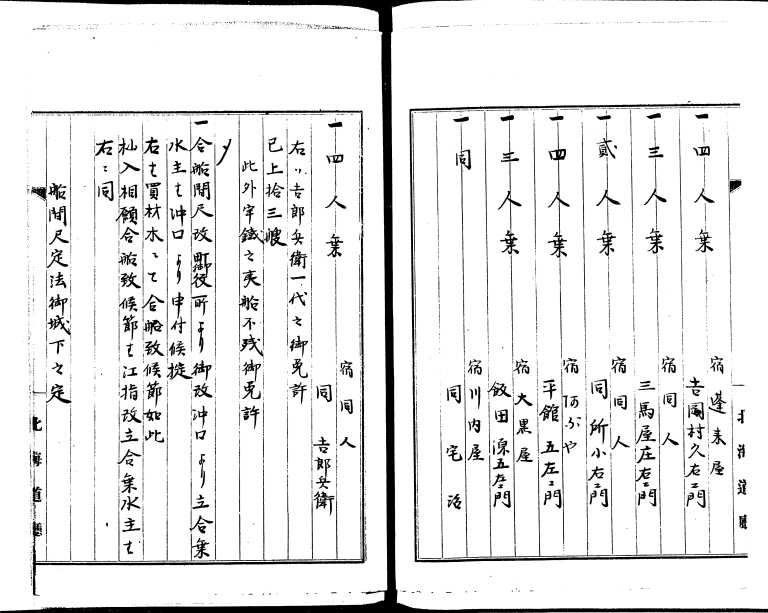 一 四人乗 宿 蓬来屋
吉岡村久右ヱ門
一 三人乗 宿 同人
三馬屋庄右ヱ門
一 貳人乗 宿 同人
同所小右ヱ門
一 四人乗 宿 阿ぶや
平舘 五左ヱ門
一 三人乗 宿 大黒屋
飯田源五左ヱ門
一 同 宿 川内屋
同 宅治
一 四人乗 宿 同人
同 吉郎兵衛
右ハ吉郎兵衛一代之御免許
已上拾三艘
此外宇鐵之夷船不残御免許
〆
一 合船間尺改町御役所より御改沖口より立合乗
水主も沖口より申付候掟
右も買材木ニて合船致候節如此
杣入相願合船致候節も江指改立合乗水主も
右ニ同
船間尺定法御城下之定
北海道廳
北海道廳